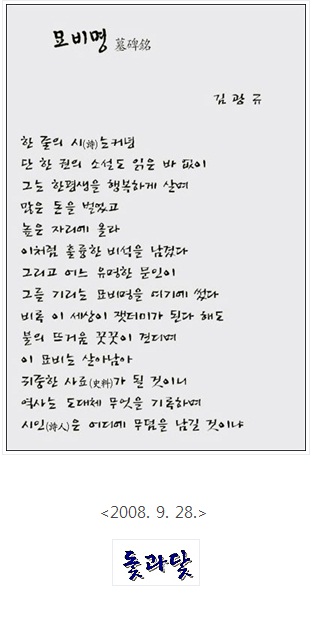 묘비명 墓碑銘
김광규
한 줄의 시(詩)는커녕
단 한 권의 소설도 읽은 바 없이
그는 한평생을 행복하게 살며
많은 돈을 벌었고
높은 자리에 올라
이처럼 훌륭한 비석을 남겼다
그리고 어느 유명한 문인이
그를 기리는 묘비명을 여기에 썼다
비록 이 세상이 잿더미가 된다 해도
불의 뜨거움 꿋꿋이 견디며
이 묘비는 살아남아
귀중한 사료(史料)가 될 것이니
역사는 도대체 무엇을 기록하며
시인(詩人)은 어디에 무덤을 남길 것이냐
<2008. 9. 28.>
돛과닻